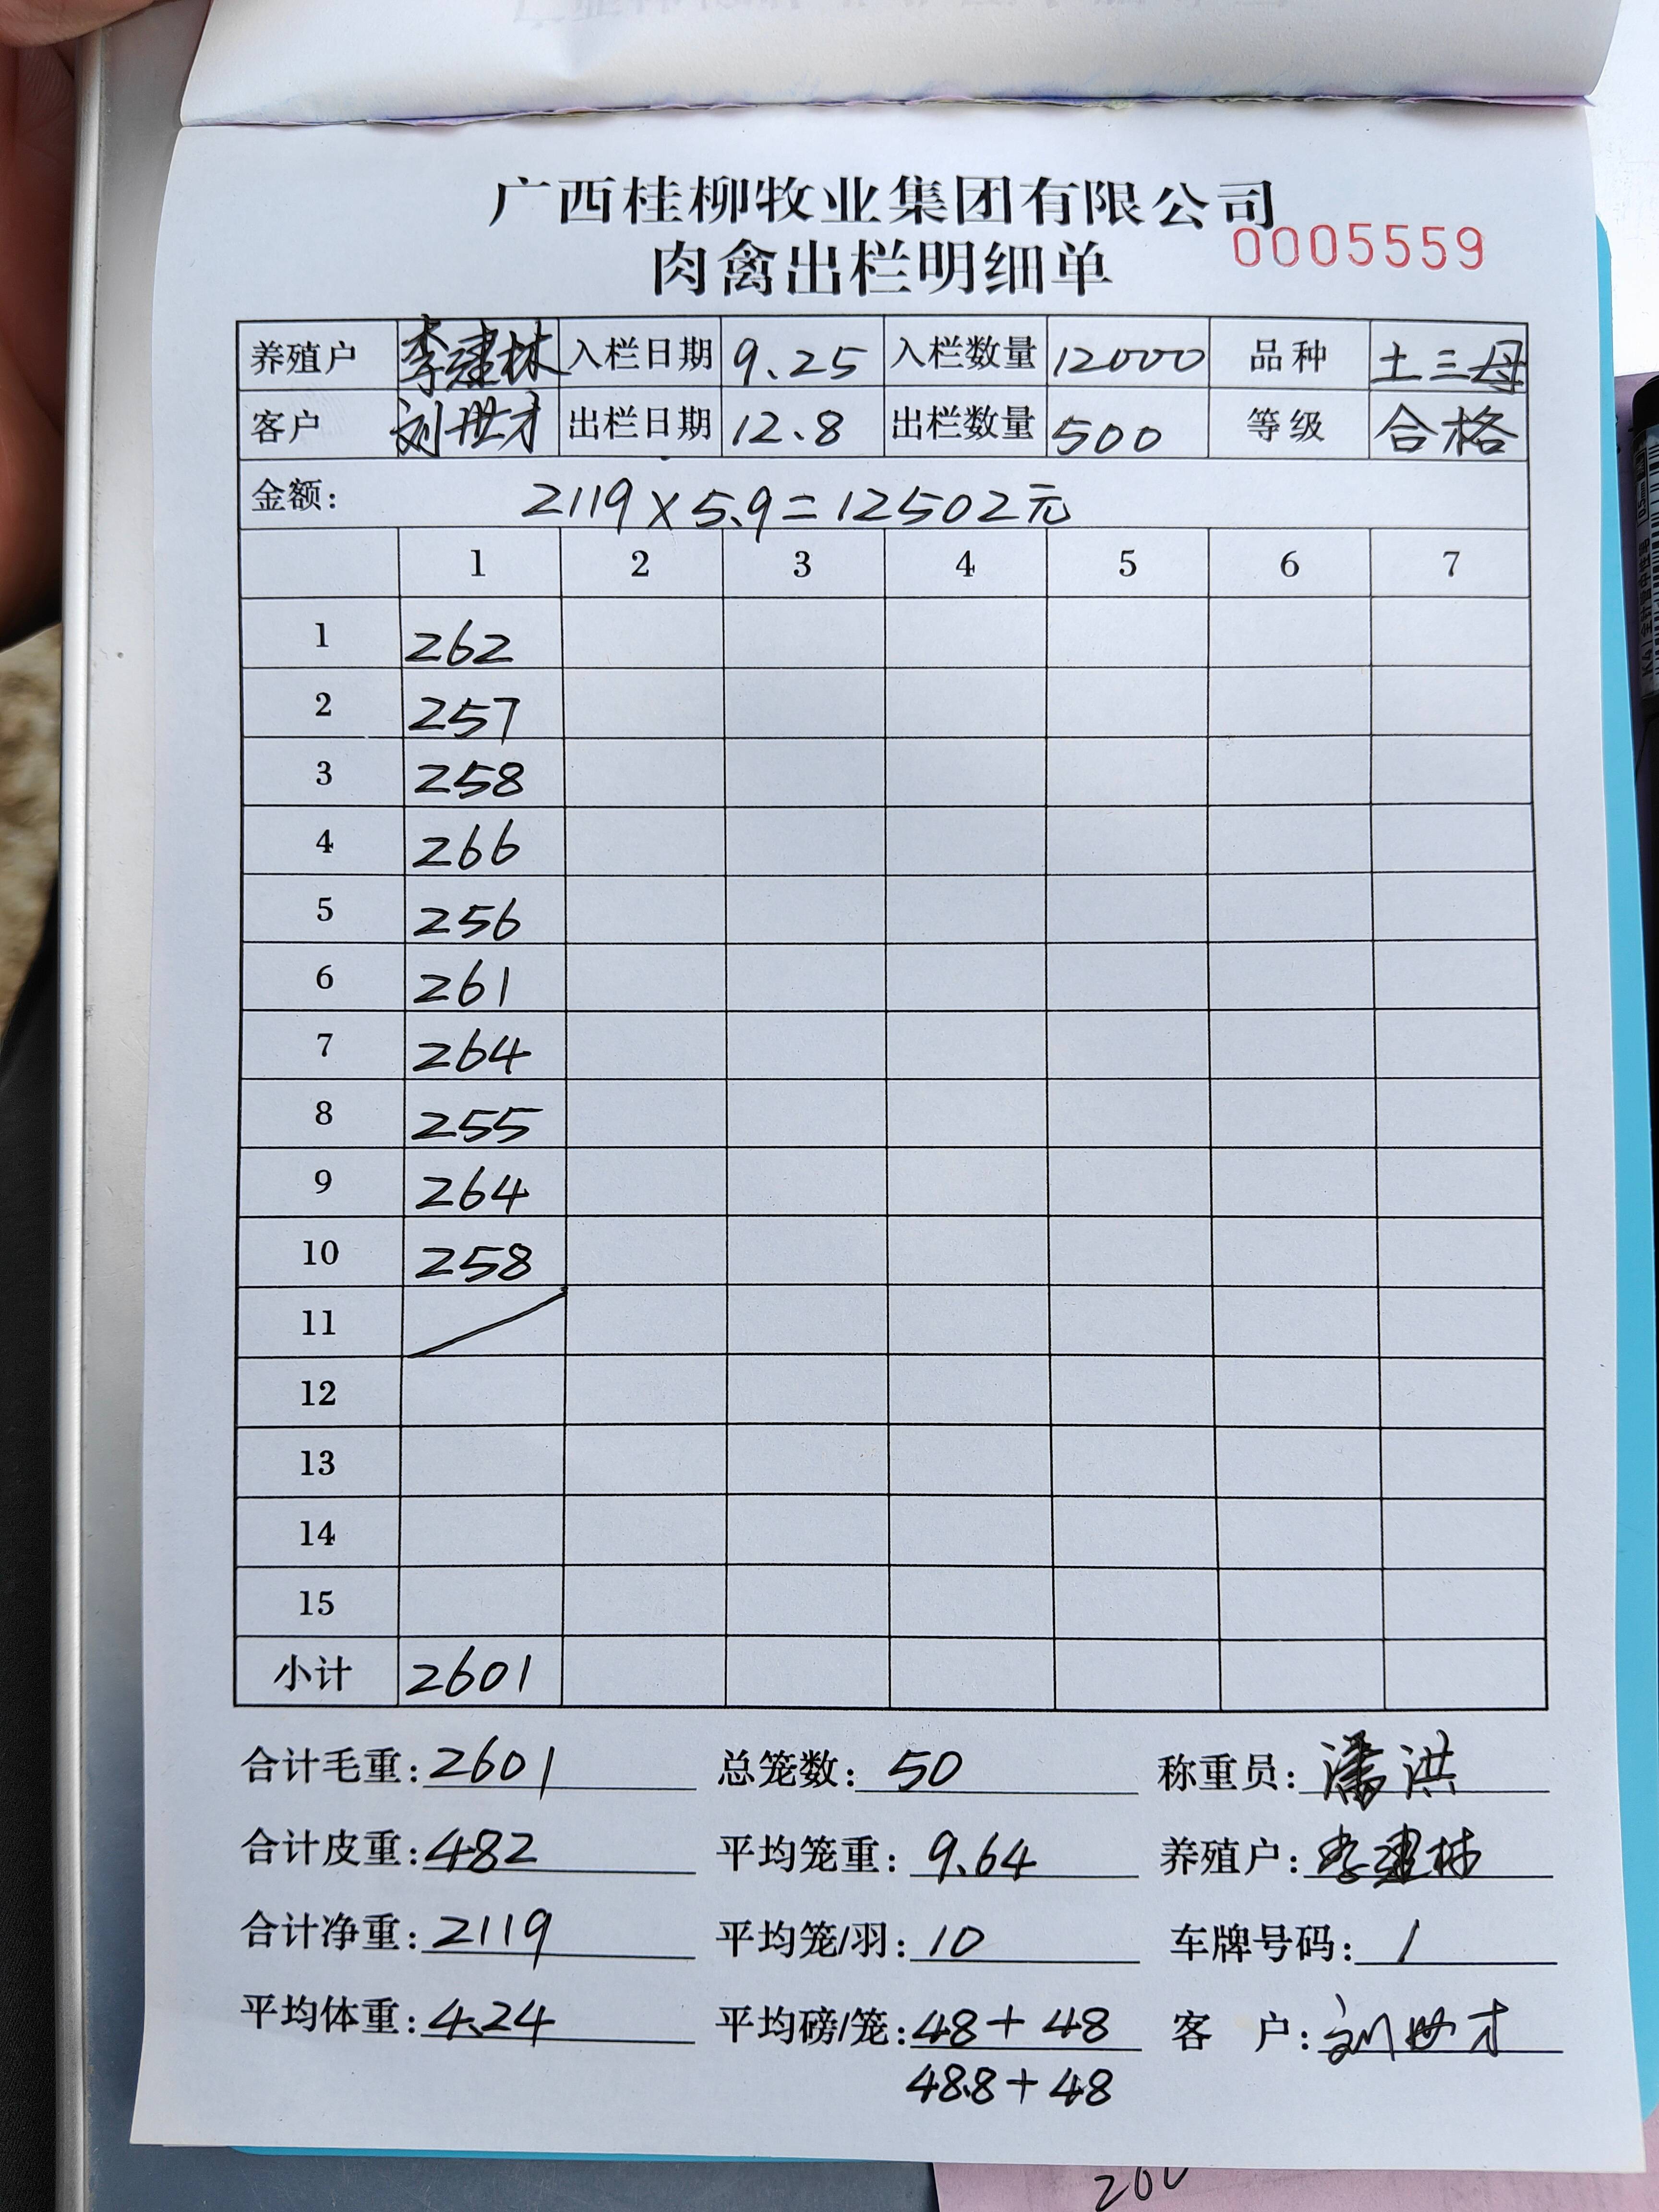 广西桂柳牧业集团有限公司
肉禽出栏明细单
0005559
养殖户 李建林 入栏日期 9.25 入栏数量 12000 品种 土三母
客户 刘世才 出栏日期 12.8 出栏数量 500 等级 合格
金额: 2119×5.9=12502元
1 2 3 4 5 6 7
1 262
2 257
3 258
4 266
5 256
6 261
7 264
8 255
9 264
10 258
11
12
13
14
15
小计 2601
合计毛重: 2601 总笼数: 50 称重员: 潘洪
合计皮重: 482 平均笼重: 9.64 养殖户: 李建林
合计净重: 2119 平均笼/羽: 10 车牌号码: 1
平均体重: 4.24 平均磅/笼: 48+48 客户: 刘世才
48.8+48